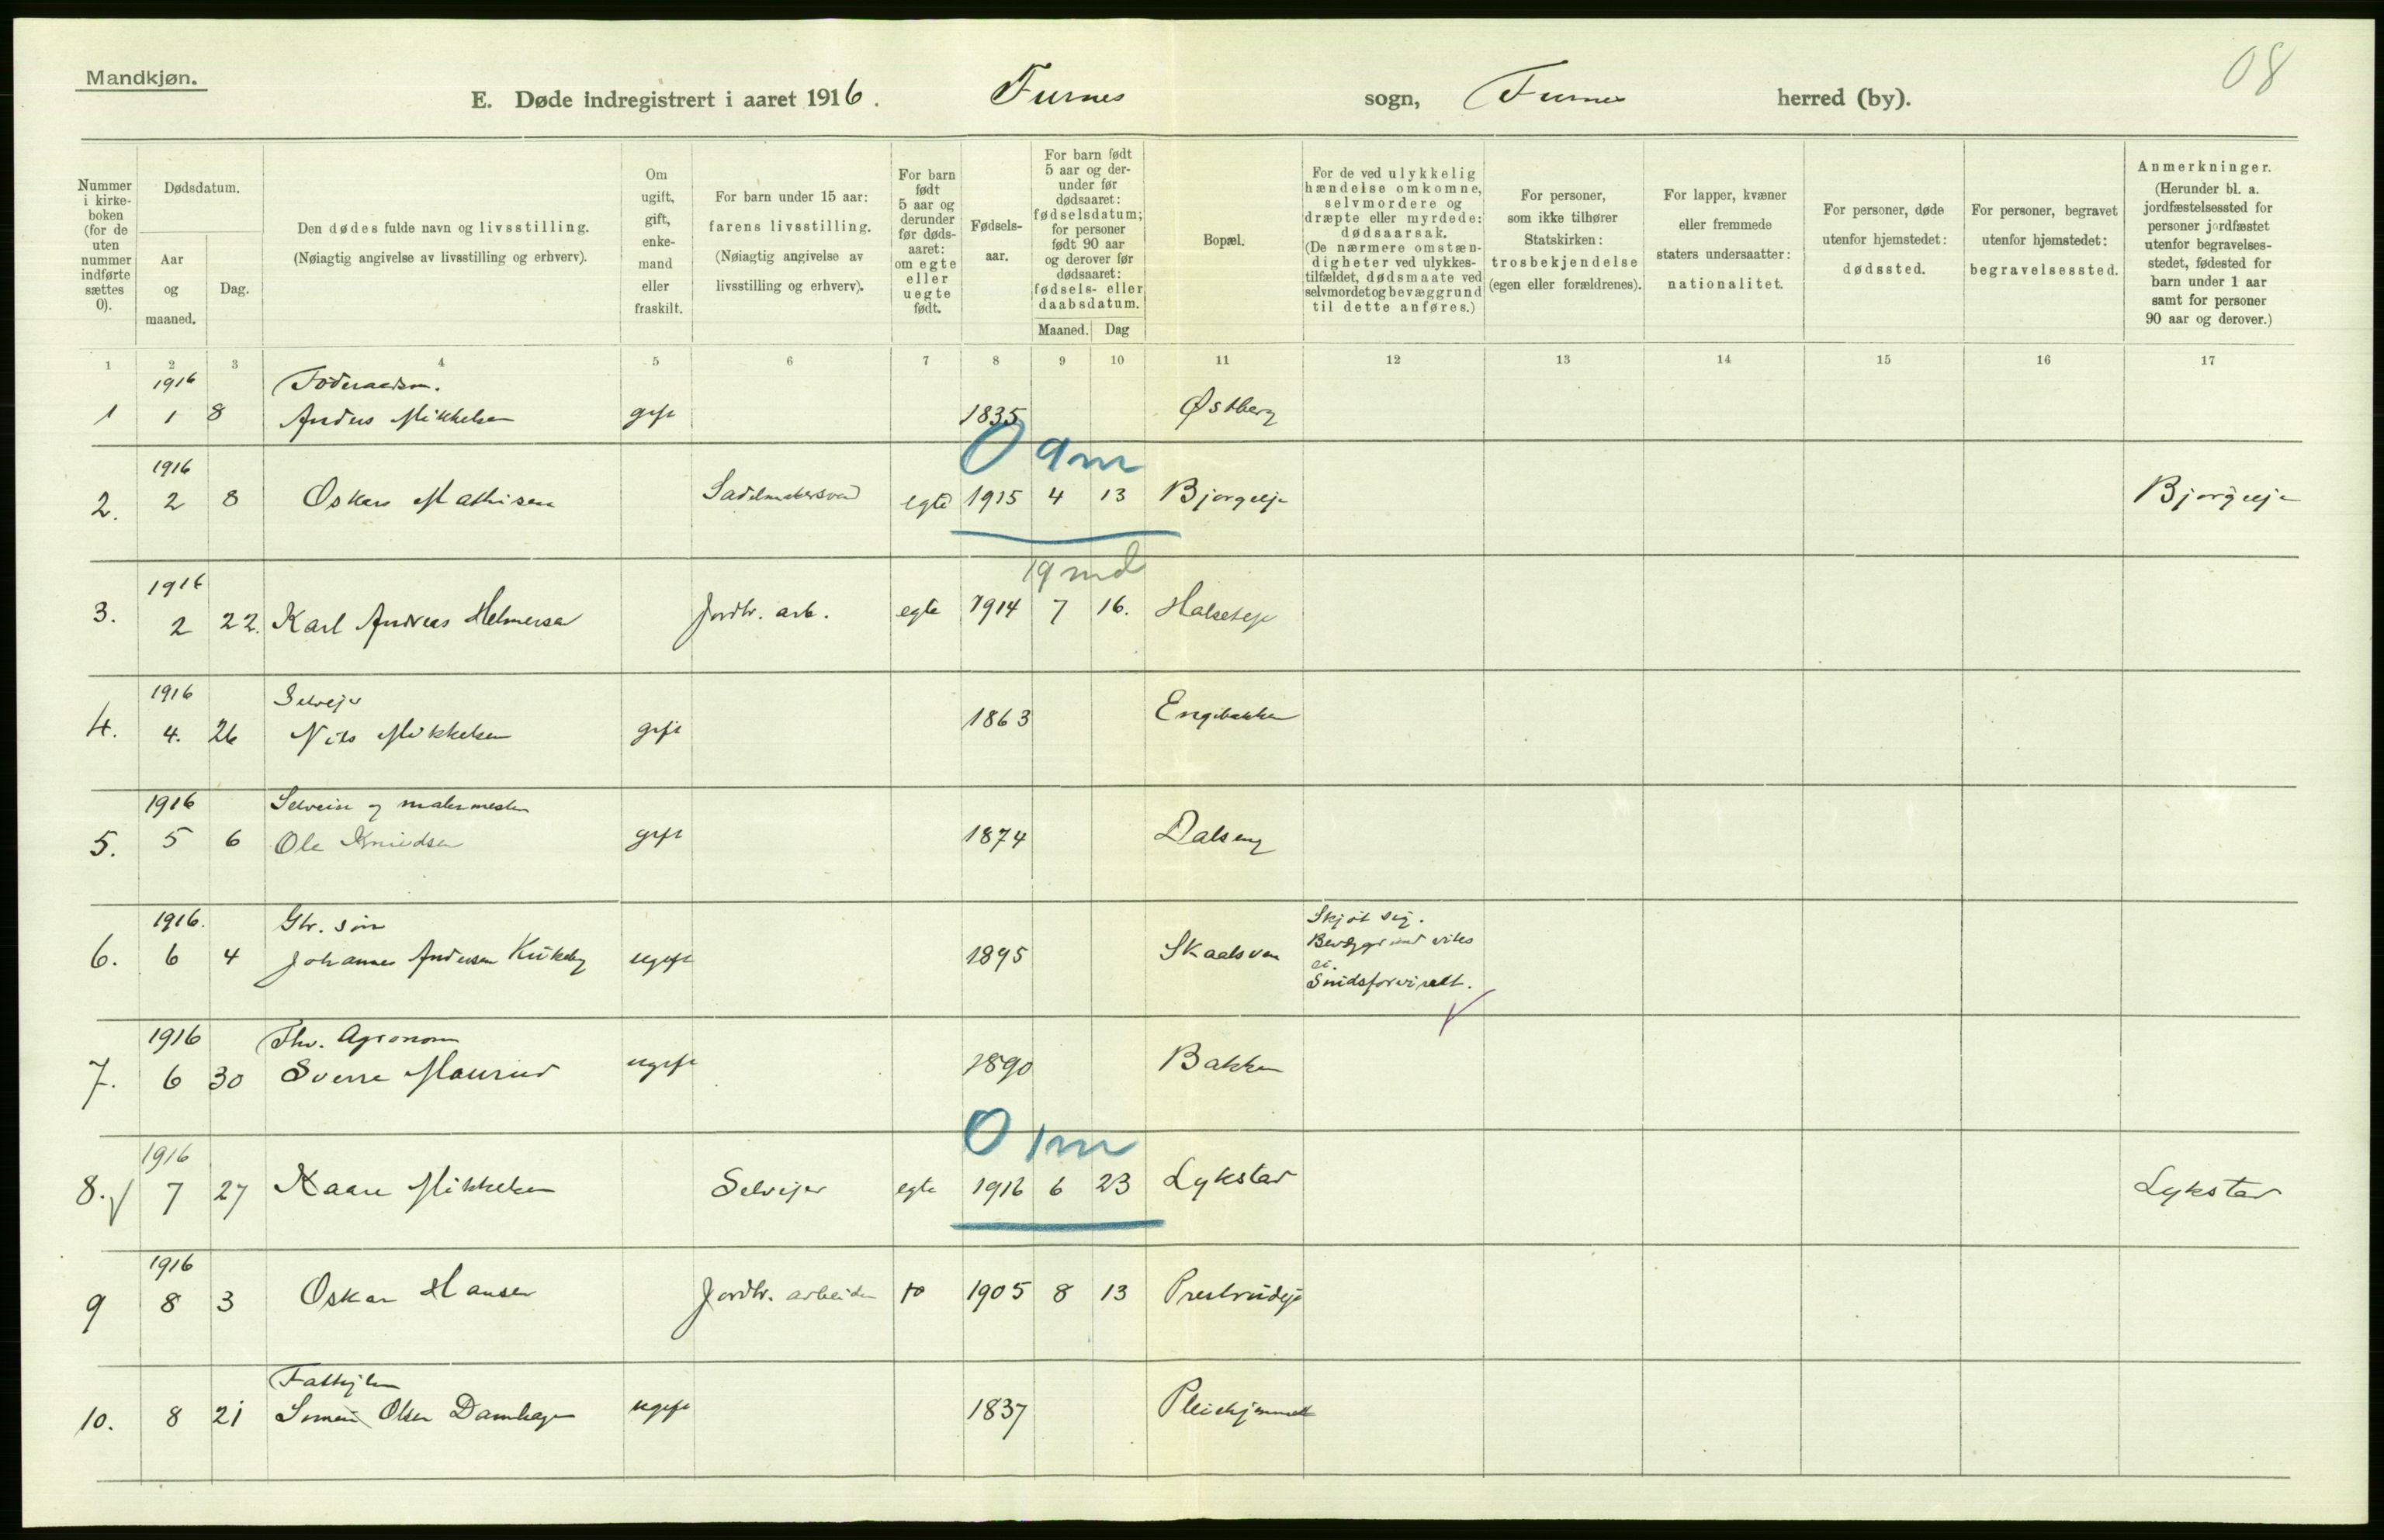 Mandkjøn.
08
E. Døde indregistrert i aaret 1916. Furnes sogn, Furnes herred (by).
Nummer i kirke-boken (for de uten nummer indførte sættes 0).
Dødsdatum.
Aar og maaned.
Dag.
Den dødes fulde navn og livsstilling.
(Nøiagtig angivelse av livsstilling og erhverv).
Om ugift, gift, enke-mand eller fraskilt.
For barn under 15 aar:
farens livsstilling.
(Nøiagtig angivelse av livsstilling og erhverv).
For barn født 5 aar og derunder før døds-aaret: om egte eller uegte født.
Fødsels-aar.
For barn født 5 aar og der-under før dødsaaret: fødselsdatum; for personer født 90 aar og derover før dødsaaret: fødsels- eller daabsdatum.
Maaned. Dag
Bopæl.
For de ved ulykkelig hændelse omkomne, selvmordere og dræpte eller myrdede: dødsaarsak.
(De nærmere omstæn-digheter ved ulykkes-tilfældet, dødsmaate ved selvmordet og bevæggrund til dette anføres.)
For personer, som ikke tilhører Statskirken: trosbekjendelse (egen eller forældrenes).
For lapper, kvæner eller fremmede staters undersaatter: nationalitet.
For personer, døde utenfor hjemstedet: dødssted.
For personer, begravet utenfor hjemstedet: begravelsessted.
Anmerkninger.
(Herunder bl. a. jordfæstelsessted for personer jordfæstet utenfor begravelses-stedet, fødested for barn under 1 aar samt for personer 90 aar og derover.)
1 2 3 4 5 6 7 8 9 10 11 12 13 14 15 16 17
1916 Føderaadsm.
1 1 8 Anders Mikkelsen gift 1835 Østberg
0 9m
1916
2. 2 8 Oskar Mathisen Sadelmakersvend egte 1915 4 13 Bjørgeeje Bjørgeeje
19 md
1916
3. 2 22. Karl Andreas Helmersen Jordbr. arb. egte 1914 7 16. Halseteje
1916 Selvejer
4. 4. 26 Nils Mikkelsen gift 1863 Engebakken
1916 Selveier og malermester
5. 5 6 Ole Knudsen gift 1874 Dalseng
1916. Gbr. søn
6. 6 4 Johannes Andersen ugift 1895 Skaalsven
Skjøt sig.
Bevæggrund vites
ei.
Sindsforvirret.
1916 Fhv. Agronom
7. 6 30 Sverre ugift 1890 Bakken
0 1m
1916
8. 7 27 Kaare Mikkelsen Selvejer egte 1916 6 23 Lykstad Lykstad
1916
9 8 3 Oskar Hansen Jordbr. arbeider 10 1905 8 13 Prestrudeje
Fattiglem
10. 8 21 Simen Olsen Damhagen ugift 1837 Pleiehjemmet